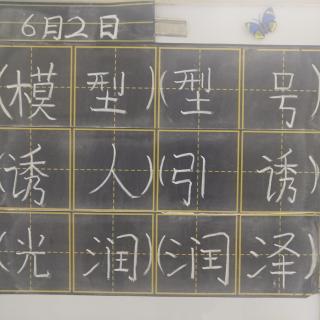 6月2日
(模型)(型号)
(诱人)(引诱)
(光润)(润泽)